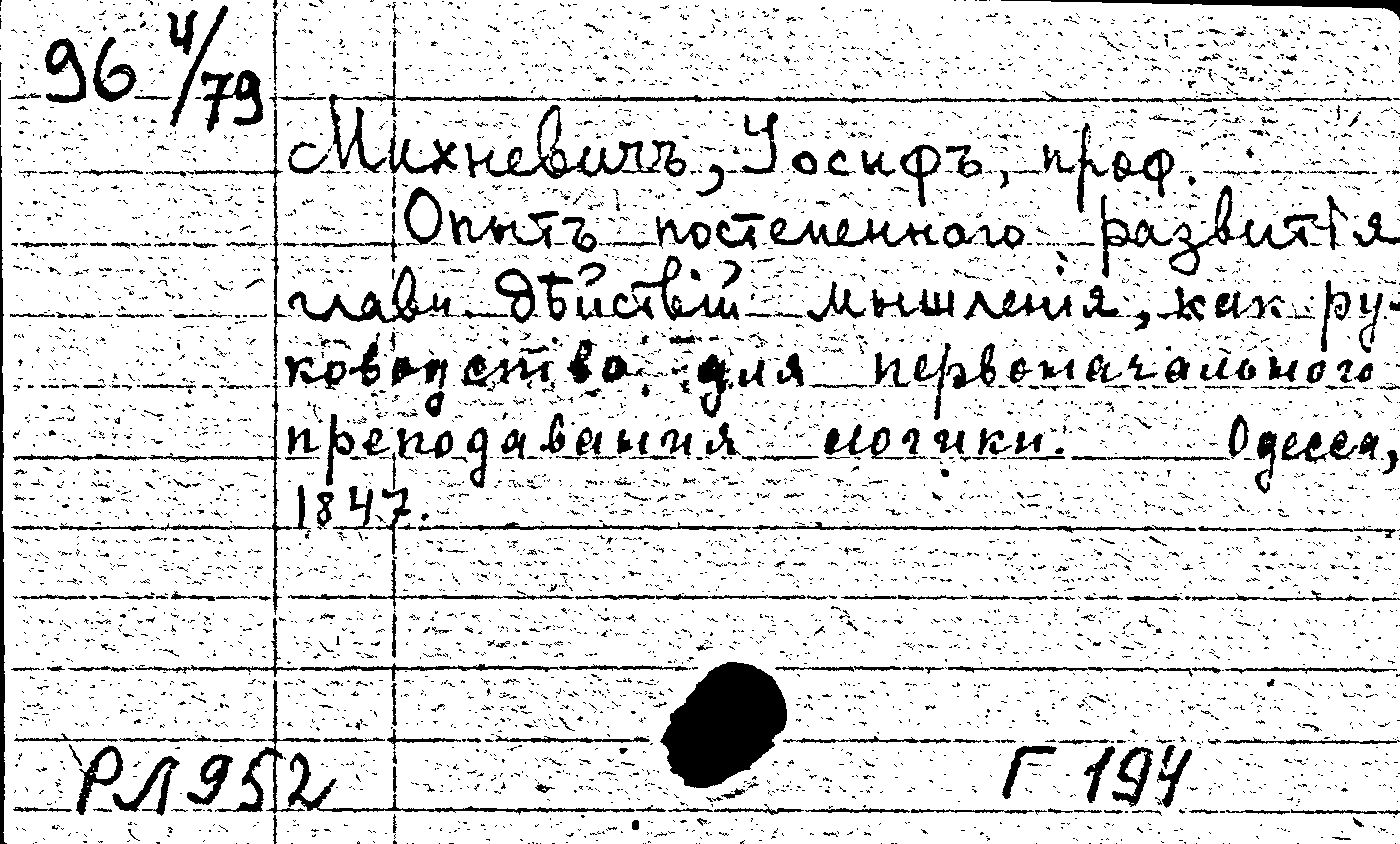 96 4/79
Михневичъ, Іосифъ, проф.
Опытъ постепенного развитія
главн. дѣйствій мышленія, как ру-
ководство для первоначального
преподавания логики. Одесса,
1847.
РЛ 952 Г 194